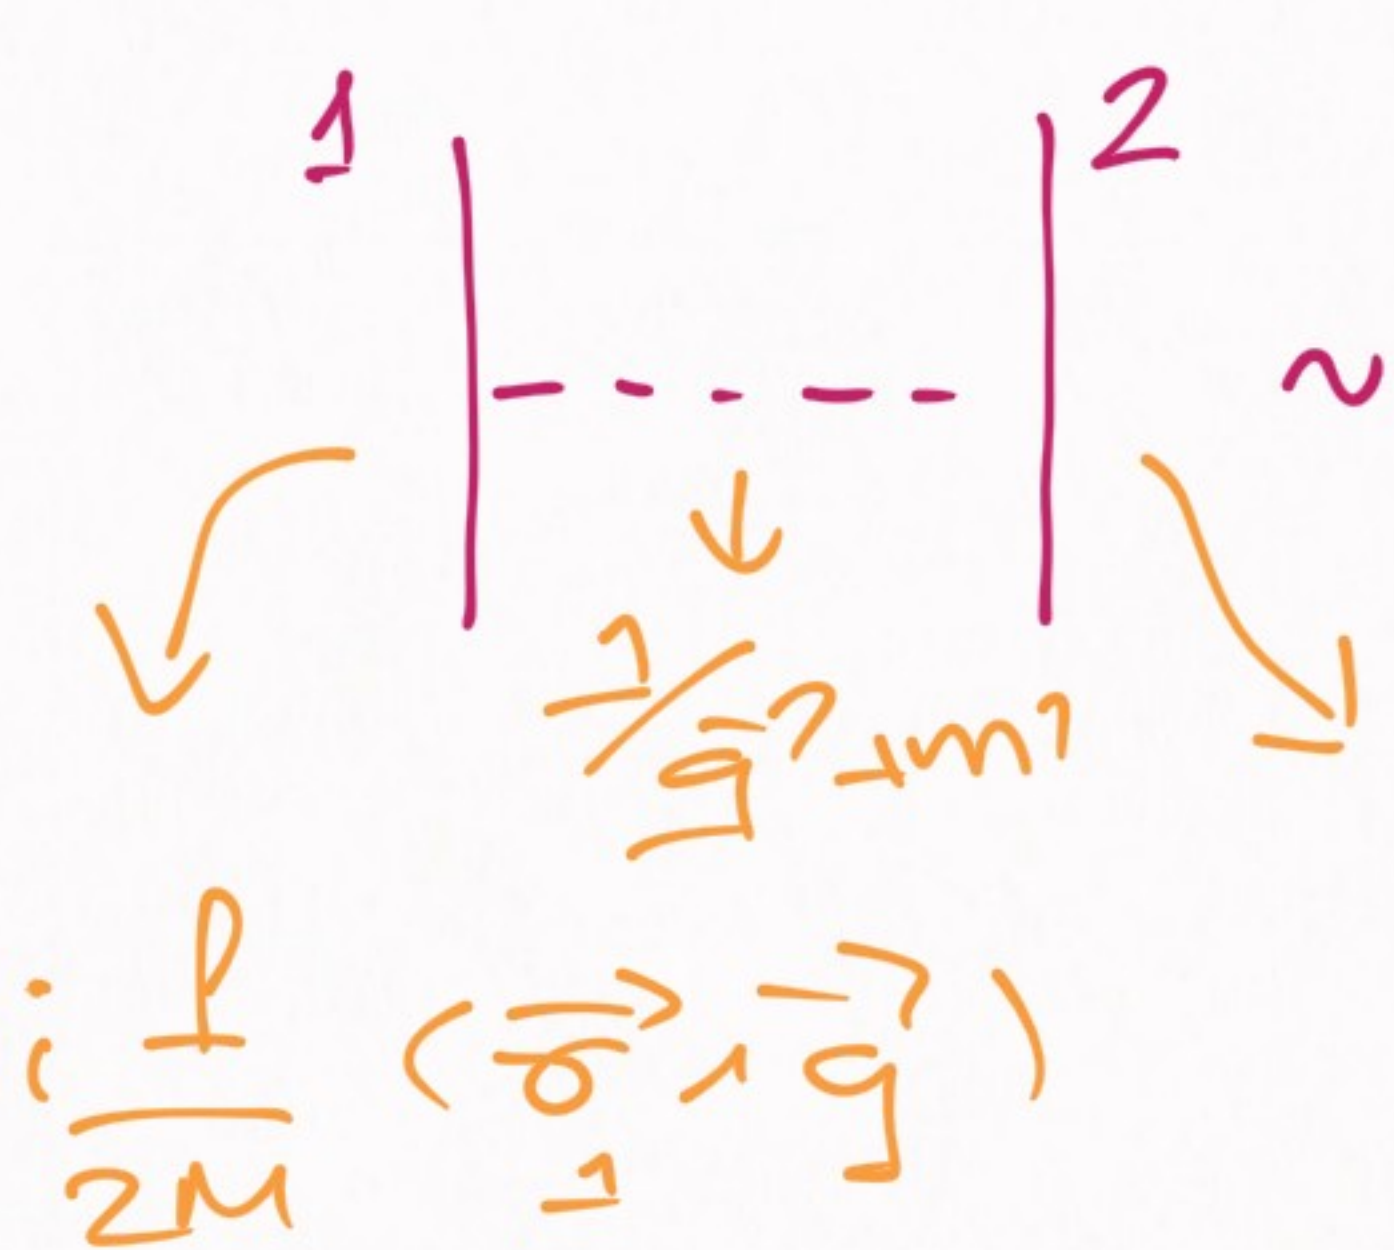 1 2
~
1/q⃗² + m²
i f/2M (σ⃗₁ ∧ q⃗)